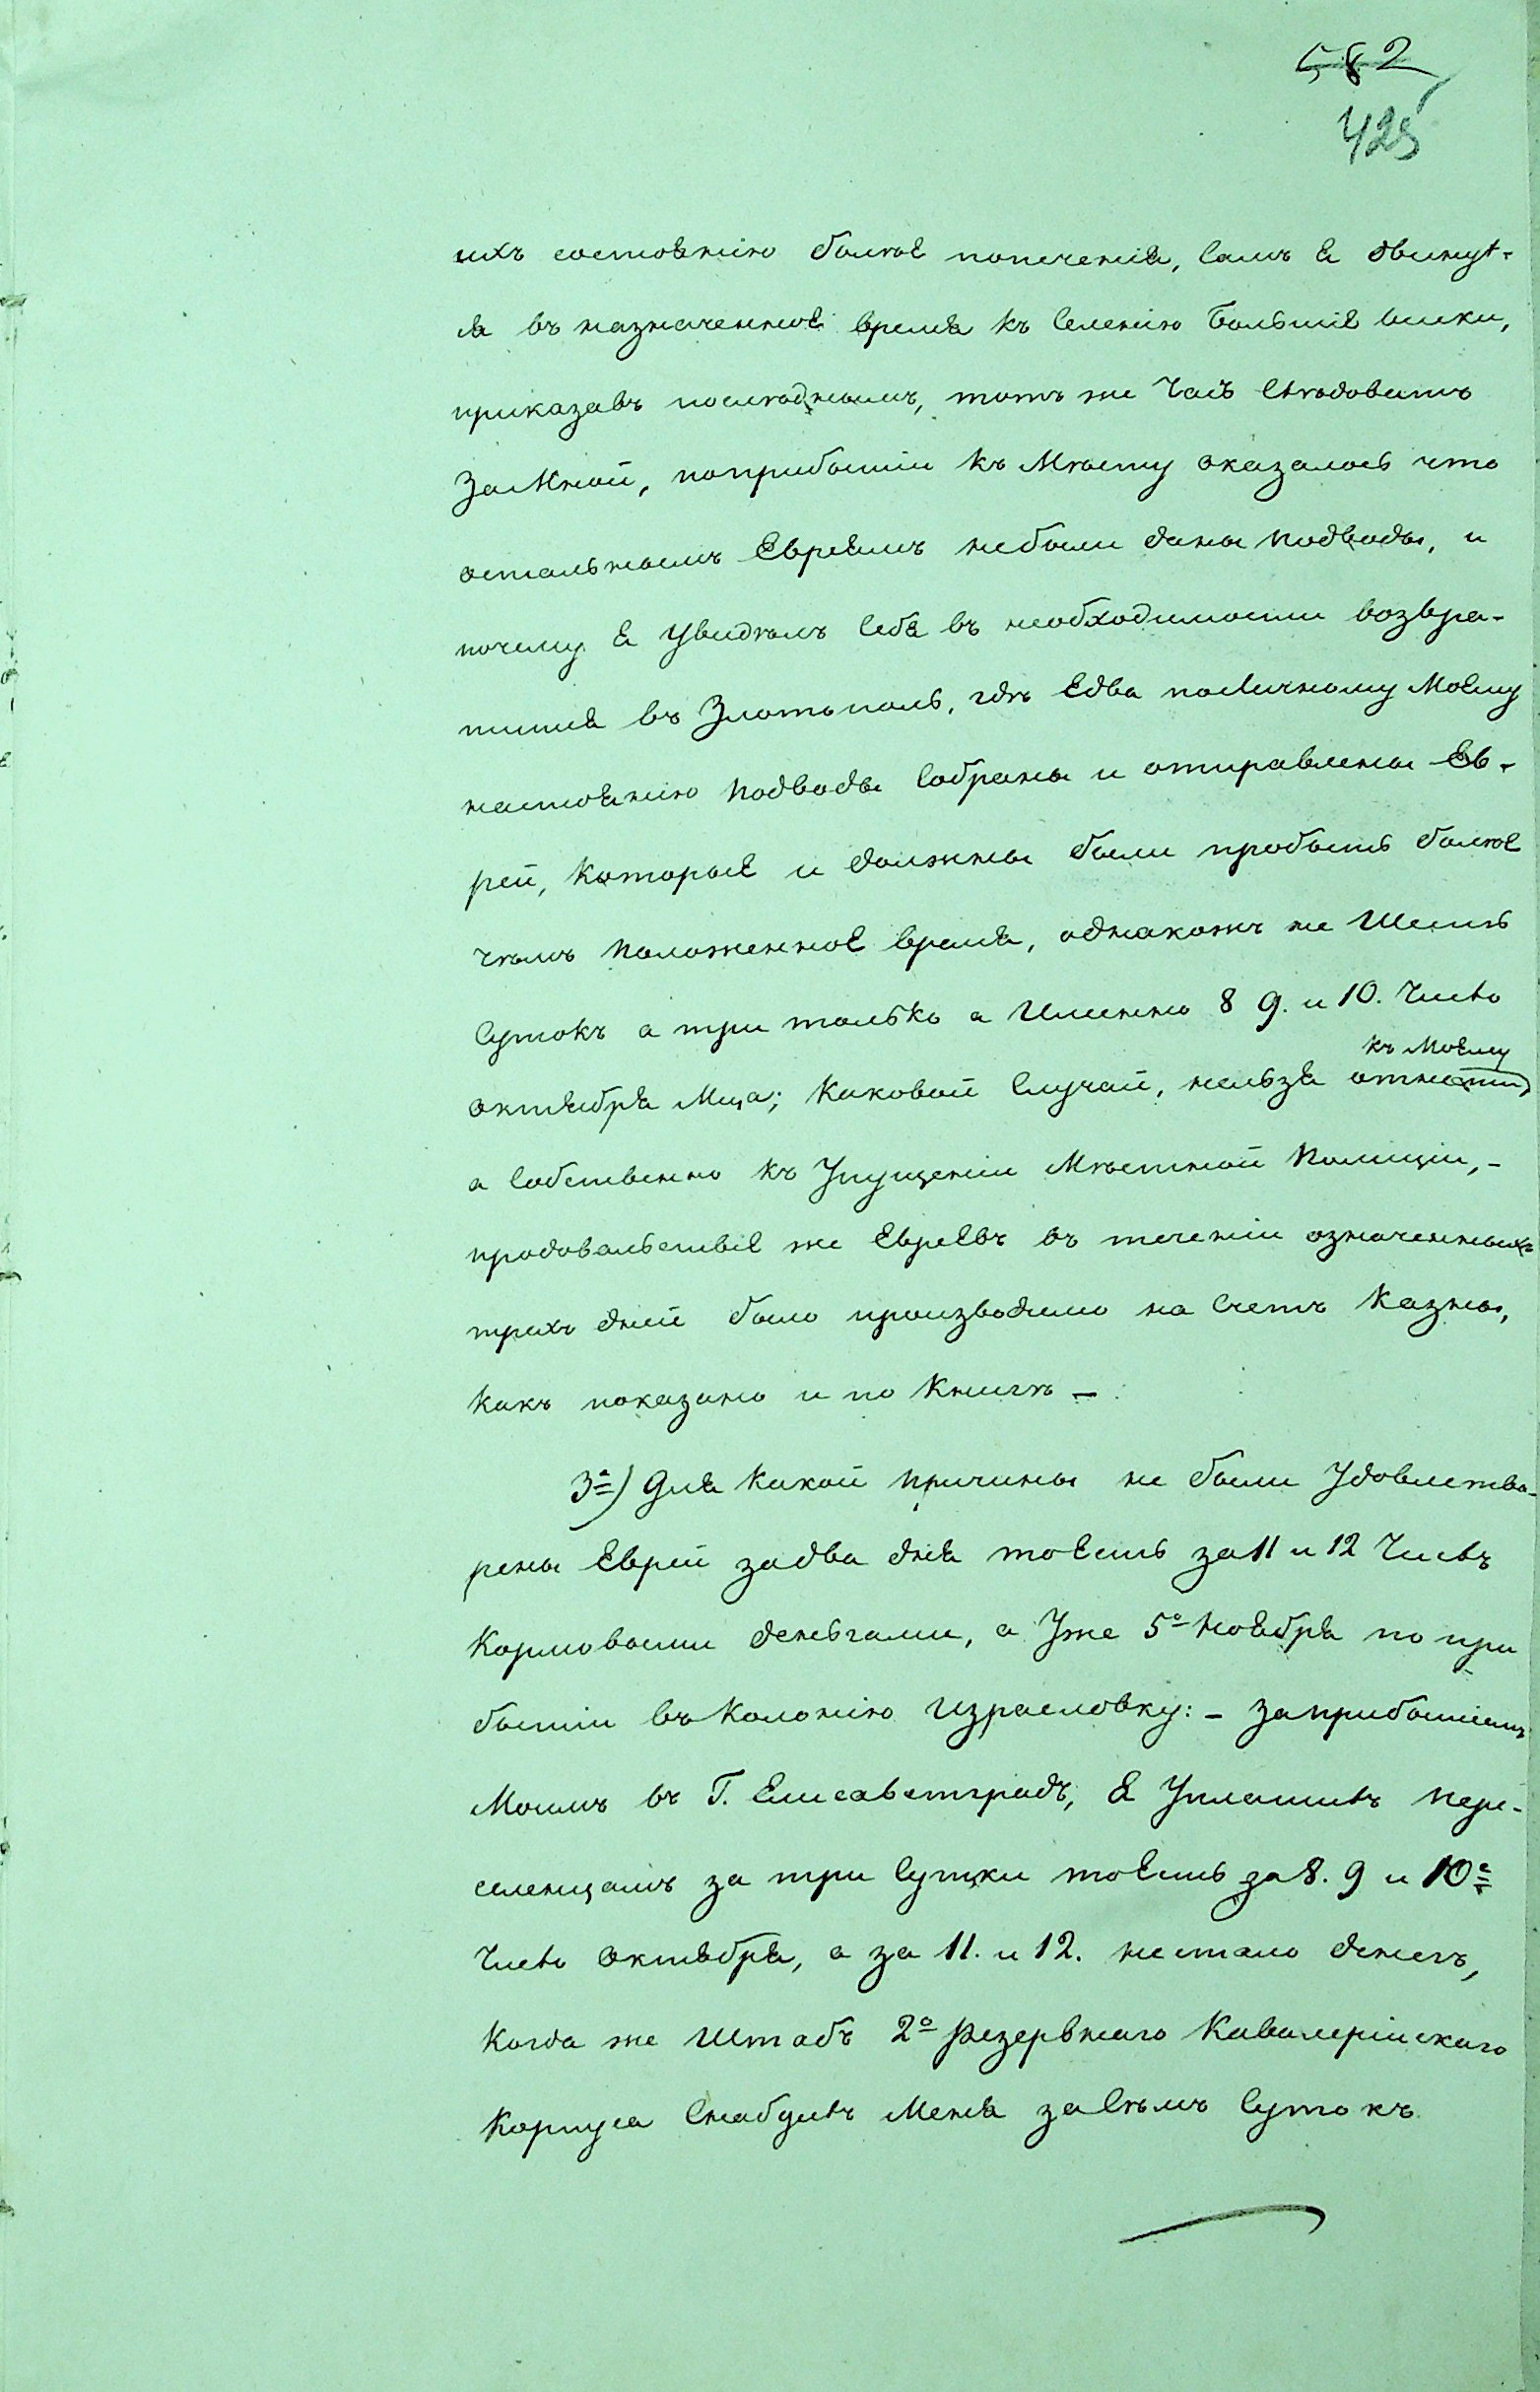 582
425
ихъ состоянію болѣе попеченія, самъ я двинул-
ся въ назначенное время къ селенію Большіе виски,
приказавъ послѣднымъ, тотъ же Часъ слѣдовать
За Мной, поприбытіи къ Мѣсту оказалось что
остальнымъ Евреямъ небыли даны подводы, и
почему я Увидѣлъ себя въ необходимости возвра-
тится въ Златополь, гдѣ Едва по личному Моему
настоянію подводы собраны и отправлены Ев-
реи, которые и должны были пробыть болѣе
чѣмъ положенное время, однакожъ не Шесть
Сутокъ а три только а Именно 8 9. и 10. Число
октября Мца; каковой Случай, нельзя отнести,
къ Моему
а собственно къ Упущеніи Мѣстной Полиціи,-
продовольствіе же Евреевъ въ теченіи означенныхъ
трехъ дней было производимо на Счетъ Казны,
какъ показано и по Книгѣ -
3е) Для какой причины не были Удовлетво-
рены Евреи задва дня тоесть за 11 и 12 Числъ
Кормовыми деньгами, а Уже 5о Ноября по при
бытіи въ Колонію Израеловку: - Заприбытіемъ
Моимъ въ Г. Елисаветградъ, я Уплативъ пере-
селенцамъ за три Сутки тоесть за 8. 9 и 10е
Число Октября, а за 11. и 12. нестало денегъ,
Когда же Штабъ 2о Резервнаго Кавалерійскаго
Корпуса Снабдивъ Меня за Сѣмъ Сутокъ